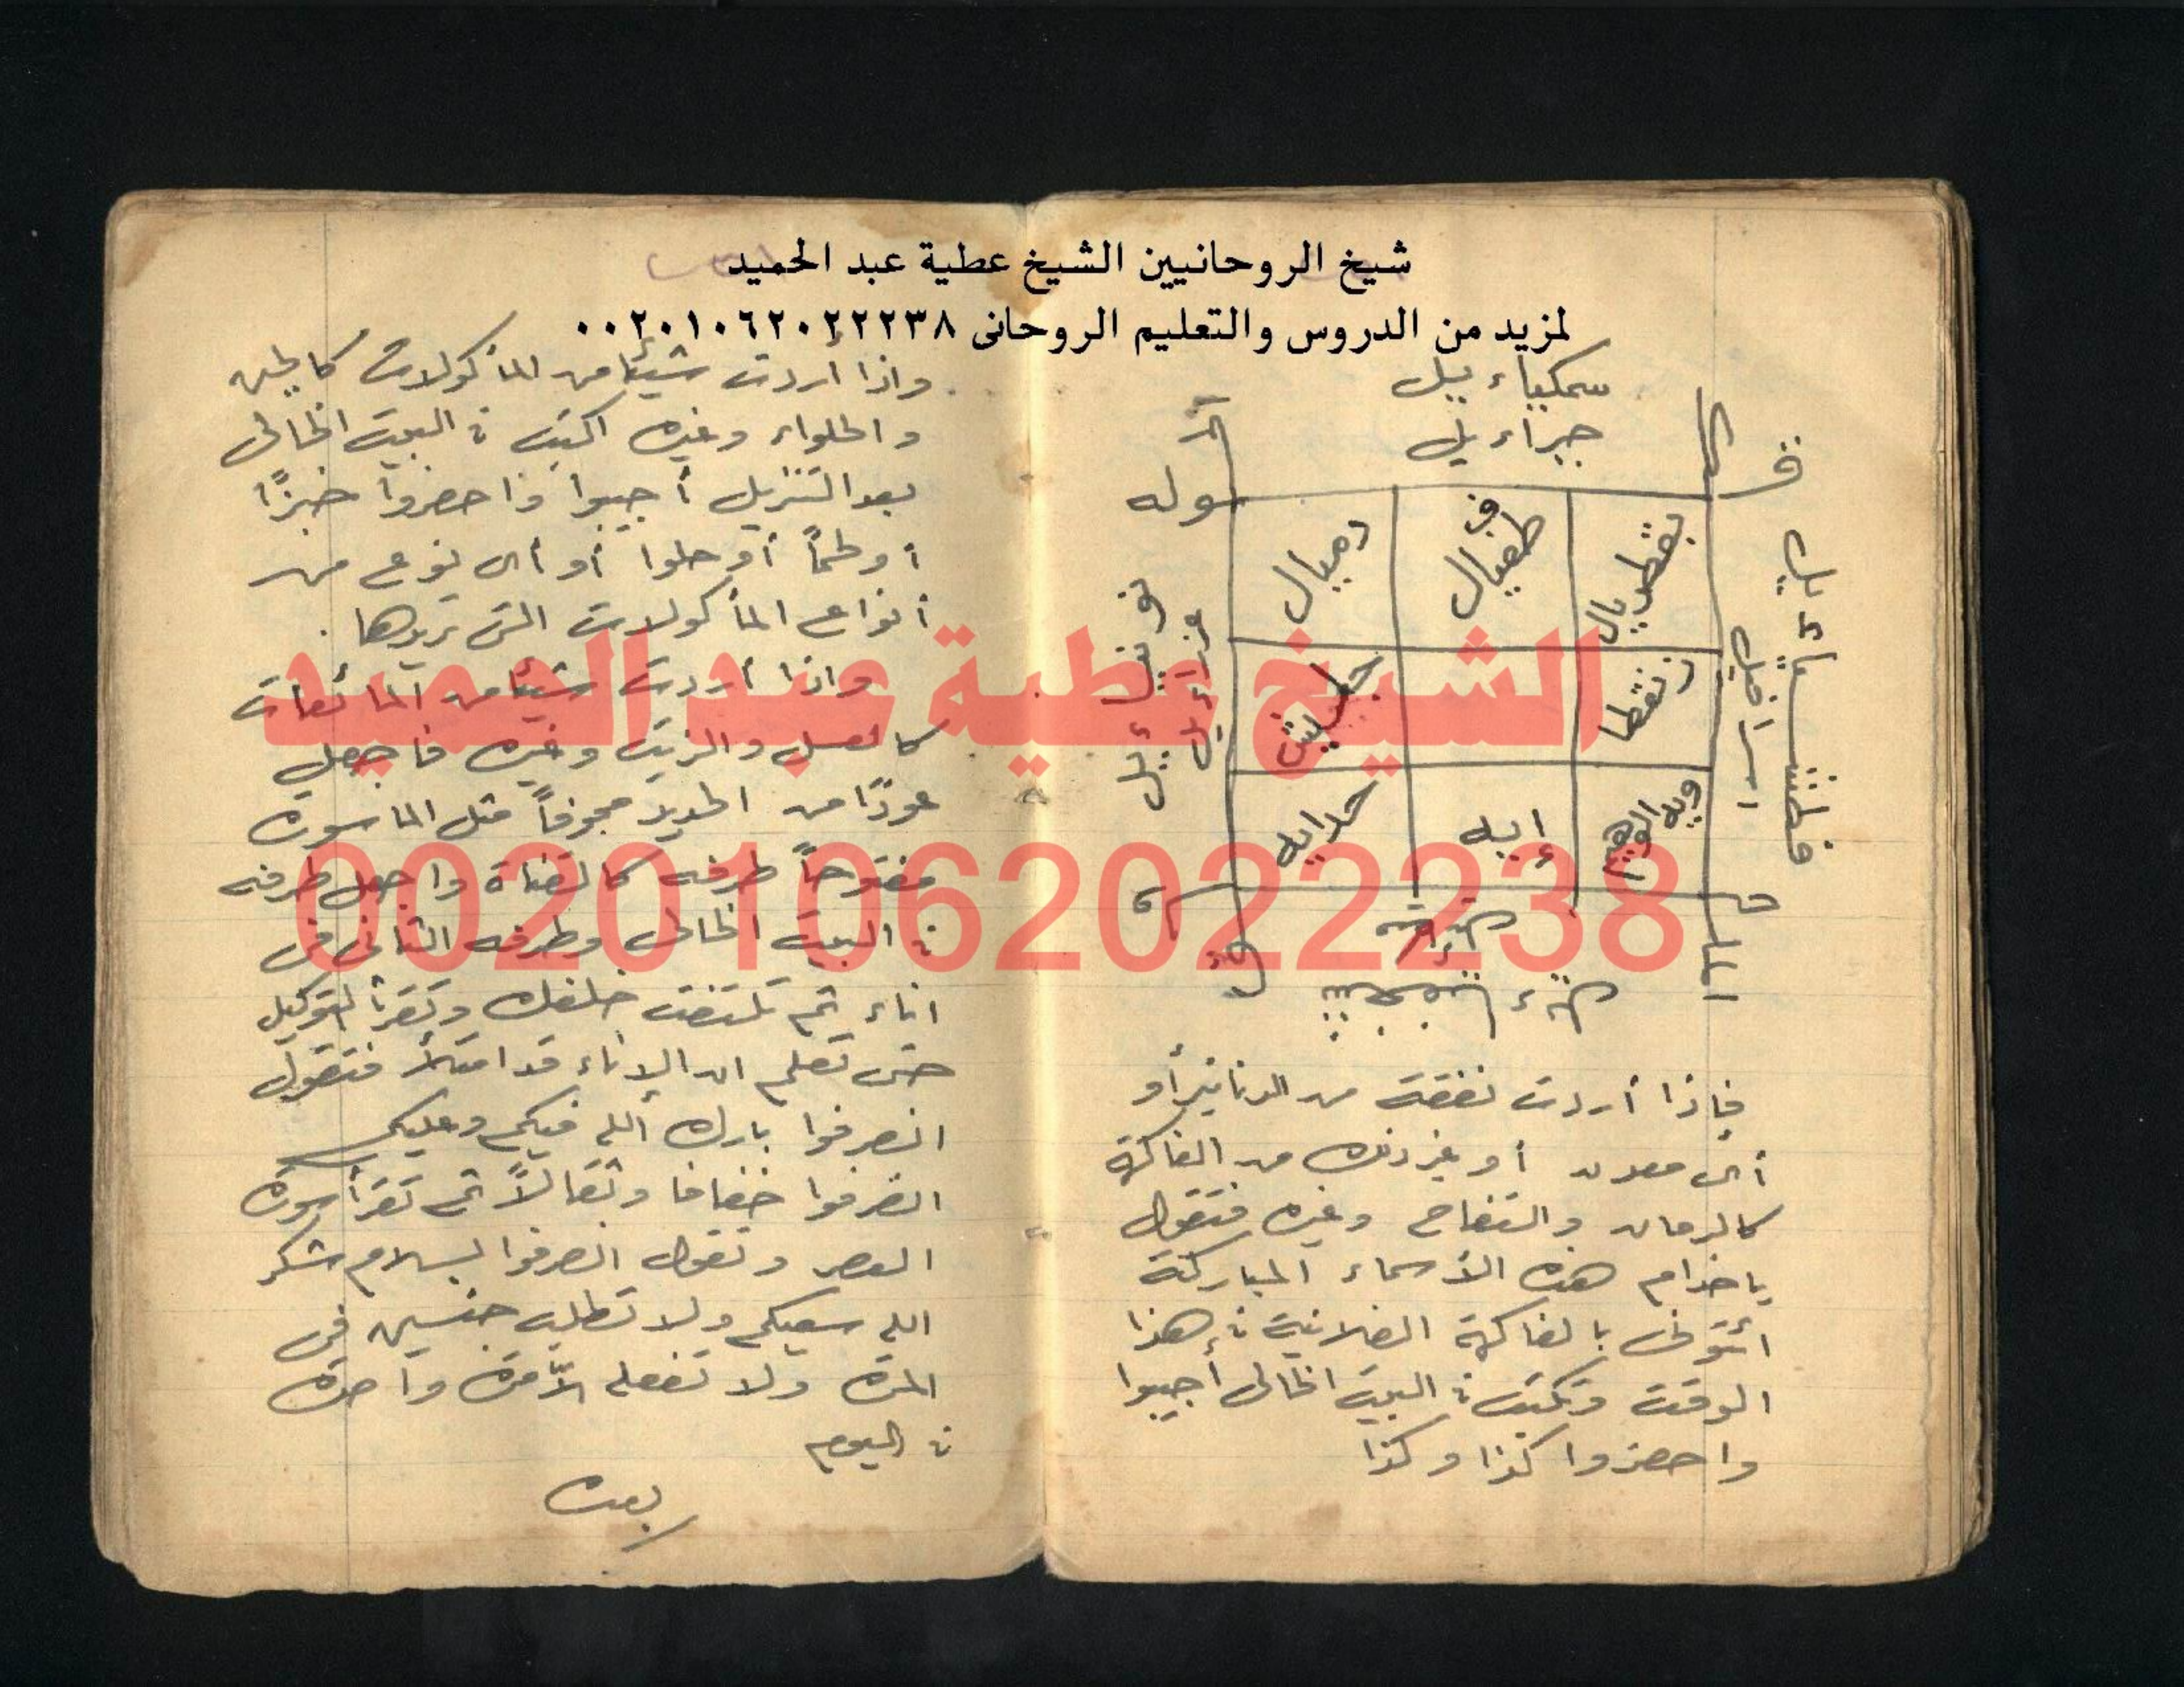 شيخ الروحانيين الشيخ عطية عبد الحميد
لمزيد من الدروس والتعليم الروحانى ٠٠٢٠١٠٦٢٠٢٢٢٣٨
سمكيا۽ييل
جبراءيل
ق
وله
الحق
الملك
بقطريال
طفيال
دميال
جليش
حدايه
إيه
اسرافيل
عزرائيل
فإذا أردت نفقة من الدنانير أو
أى معدن أو غير ذلك من الفاكهة
كالرمان والتفاح وغيره فتقول
ياخدام هذه الأسماء المباركة
ائتونى بالفاكهة الفلانية فى هذا
الوقت وتكتب فى البيت الخالى أجيبوا
واحضروا كذا وكذا
واذا أردت شيئا من المأكولات كالجبن
والحلواء وغيره اكتب فى البيت الخالى
بعد التنزيل أجيبوا واحضروا خبزًا
أو لحماً أو حلوا أو أى نوع من
أنواع المأكولات التى تريدها .
واذا أردت شيئا من المائعات
كالعسل والزيت وغيره فاجعل
عودًا من الحديد مجوفاً مثل الماسورة
مفتوحاً طرفه كالقناة واجعل طرفه
فى البيت الخالى وطرفه الثانى فى
اناء ثم تلتفت خلفك وتقرأ التوكيل
حتى تعلم ان الإناء قد امتلأ فتقول
انصرفوا بارك الله فيكم وعليكم
انصرفوا خفافا وثقالاً ثم تقرأ سورة
العصر وتقول انصرفوا بسلام شكر
الله سعيكم ولا تطلب جنسين فى
المرة ولا تفعله الاّ مرة واحدة
فى اليوم
بعده
الشيخ عطية عبد الحميد
00201062022238